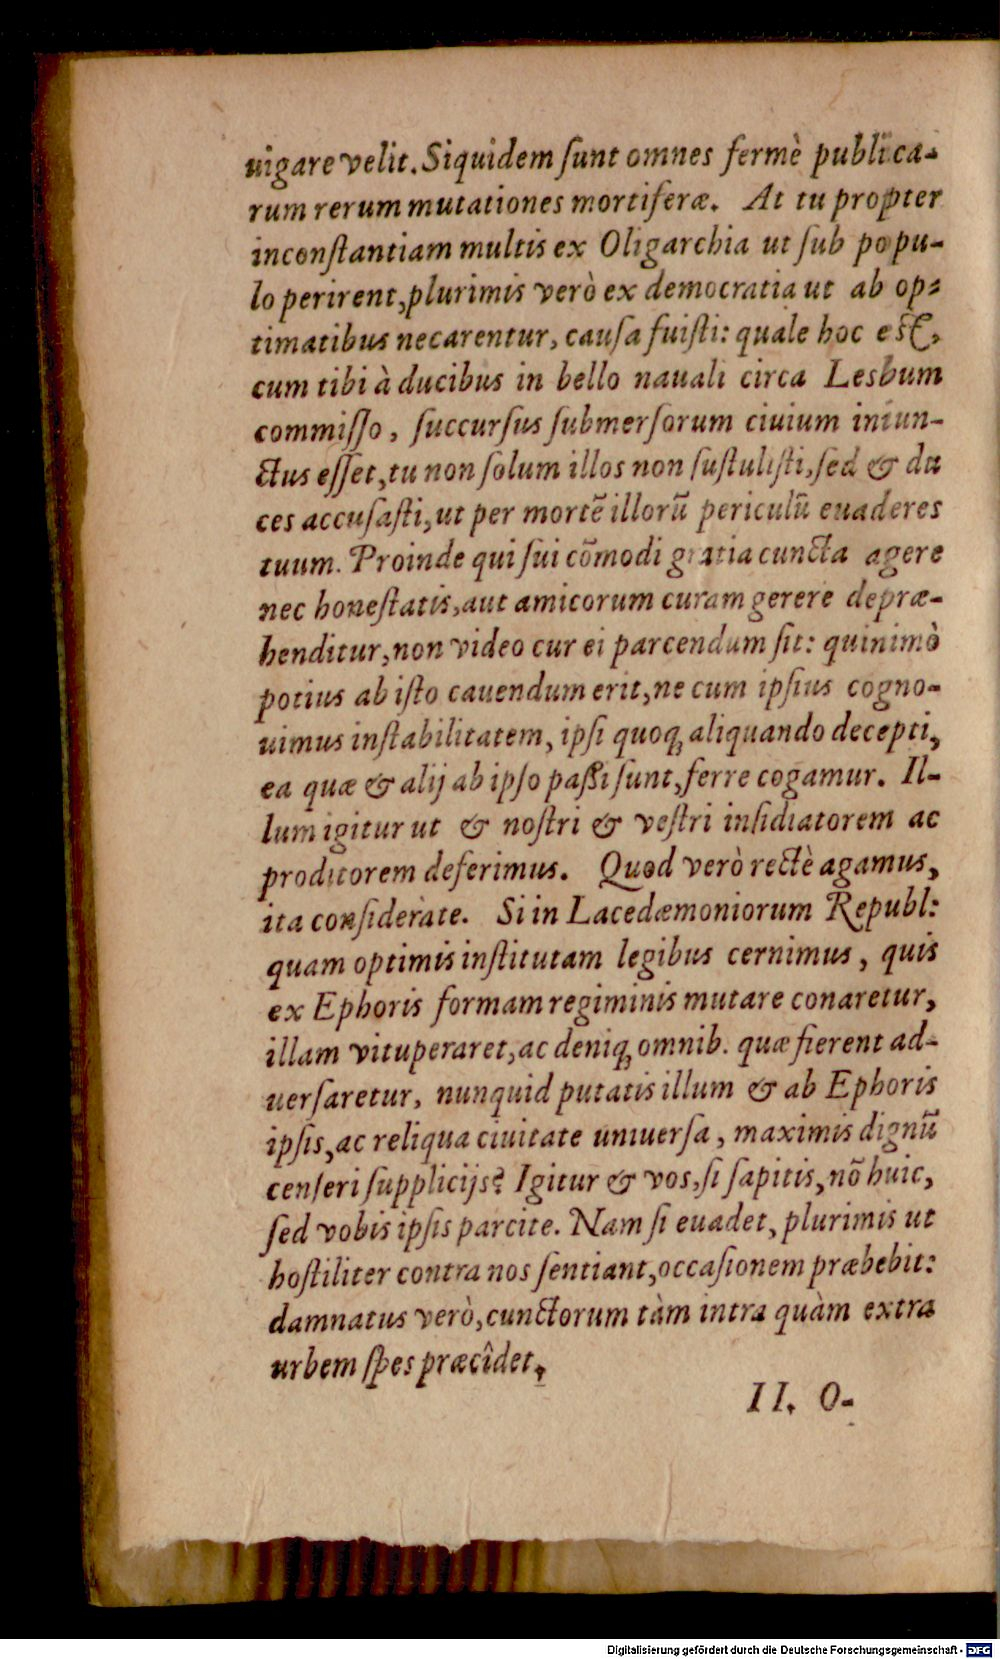 uigare velit. Siquidem ſunt omnes fermè publica-
rum rerum mutationes mortiferæ. At tu propter
inconſtantiam multis ex Oligarchia ut ſub popu-
lo perirent, plurimis verò ex democratia ut ab op-
timatibus necarentur, cauſa fuiſti: quale hoc eſt,
cum tibi à ducibus in bello nauali circa Lesbum
commiſſo, ſuccurſus ſubmerſorum ciuium iniun-
ctus eſſet, tu non ſolum illos non ſuſtuliſti, ſed & du
ces accuſaſti, ut per mortẽ illorũ periculũ euaderes
tuum. Proinde qui ſui cõmodi gratia cuncta agere
nec honeſtatis, aut amicorum curam gerere depræ-
henditur, non video cur ei parcendum ſit: quinimò
potius ab iſto cauendum erit, ne cum ipſius cogno-
uimus inſtabilitatem, ipſi quoq; aliquando decepti,
ea quæ & alij ab ipſo paſsi ſunt, ferre cogamur. Il-
lum igitur ut & noſtri & veſtri inſidiatorem ac
proditorem deferimus. Quod verò rectè agamus,
ita conſiderate. Si in Lacedæmoniorum Republ:
quam optimis inſtitutam legibus cernimus, quis
ex Ephoris formam regiminis mutare conaretur,
illam vituperaret, ac deniq; omnib. quæ fierent ad-
uerſaretur, nunquid putatis illum & ab Ephoris
ipſis, ac reliqua ciuitate uniuerſa, maximis dignũ
cenſeri ſupplicijs? Igitur & vos, ſi ſapitis, nõ huic,
ſed vobis ipſis parcite. Nam ſi euadet, plurimis ut
hoſtiliter contra nos ſentiant, occaſionem præbebit:
damnatus verò, cunctorum tàm intra quàm extra
urbem ſpes præcîdet.
II. O-
Digitalisierung gefördert durch die Deutsche Forschungsgemeinschaft - DFG